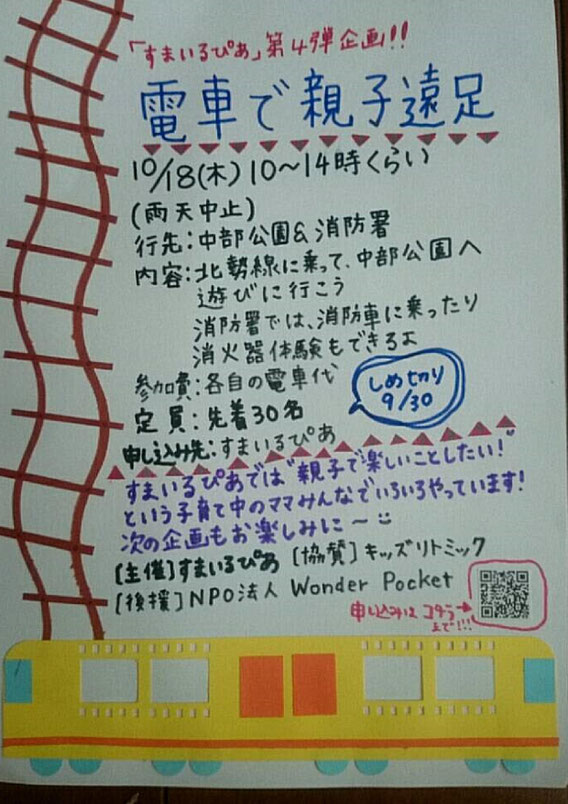 「すまいるぴあ」第4弾企画!!
電車で親子遠足
10/18(木)10〜14時くらい
(雨天中止)
行先:中部公園&消防署
内容:北勢線に乗って、中部公園へ
遊びに行こう
消防署では、消防車に乗ったり
消火器体験もできるよ
参加費:各自の電車代
定員:先着30名
しめ切り
9/30
申し込み先:すまいるぴあ
すまいるぴあでは"親子で楽しいことしたい!"
という子育て中のママみんなでいろいろやっています!
次の企画もお楽しみに〜
[主催]すまいるぴあ [協賛]キッズリトミック
[後援]NPO法人 Wonder Pocket
申し込みは コチラ→
まで!!!